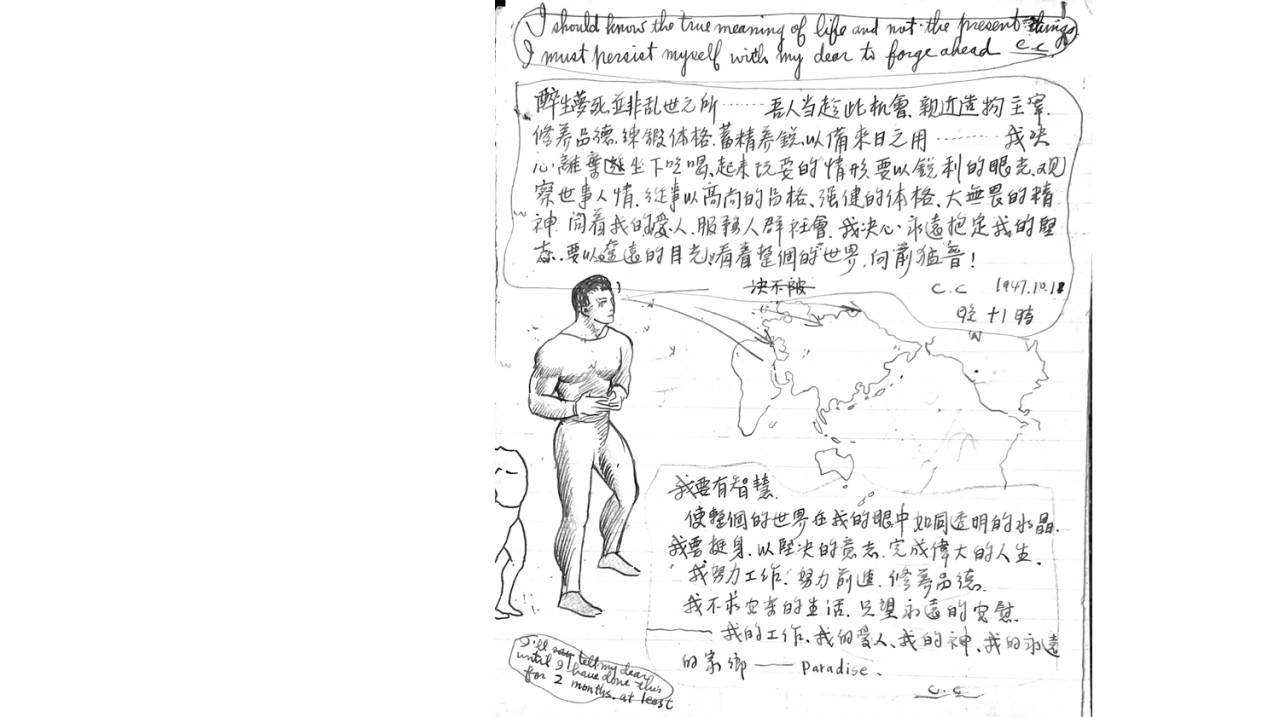 I should know the true meaning of life and not the present things
I must persist myself with my dear to forge ahead C.C
醉生夢死,並非乱世之所……吾人当趁此机會,親近造物主宰,
修养品德,鍊鍛体格,蓄精养銳,以備來日之用………我决
心離棄坐下吃喝、起來玩耍的情形,要以銳利的眼光,观
察世事人情,从事以高尚的品格、强健的体格、大無畏的精
神,同着我的愛人,服務人群社會,我决心永遠抱定我的堅
志,要以遠的目光,看着整個的世界,向前猛晉!
决不被
C.C 1947.10.18
晚十1時
我要有智慧,
使整個的世界在我的眼中如同透明的水晶.
我要挺身,以堅决的意志,完成偉大的人生.
我努力工作,努力前進,修养品德.
我不求安李的生活,只望永遠的安慰.
——我的工作、我的愛人、我的神、我的永遠
的家鄉——Paradise.
C.C
I'll tell my dear
until I have done this
for 2 months, at least